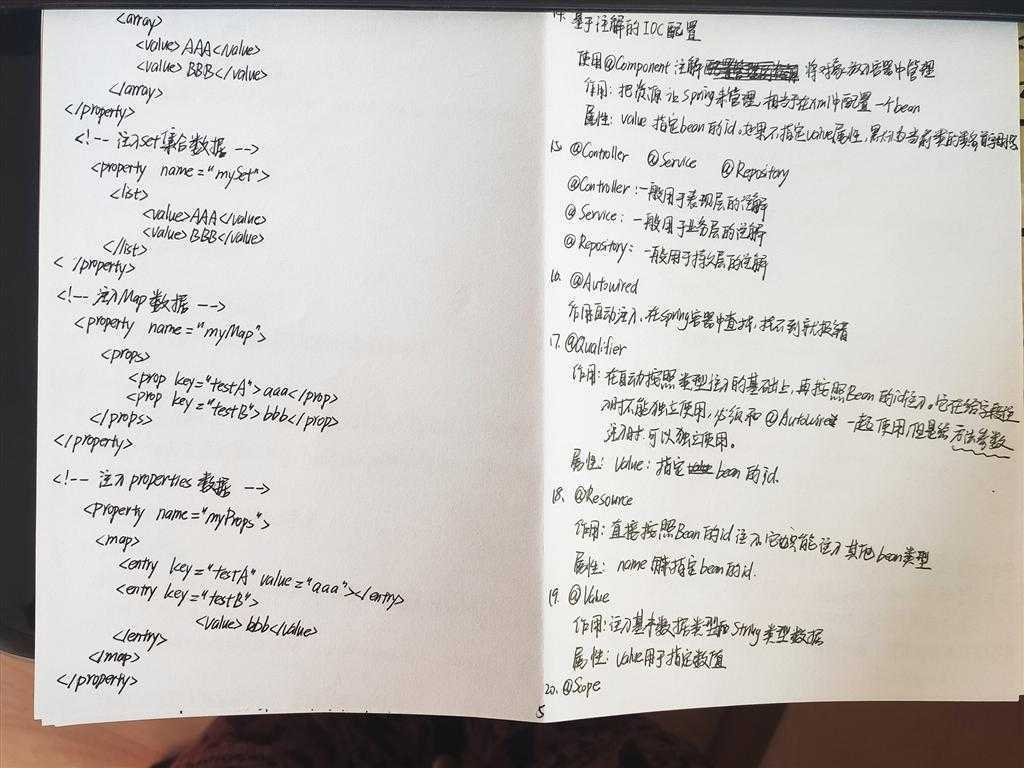 <array>
<value>AAA</value>
<value>BBB</value>
</array>
</property>
<!-- 注入set集合数据 -->
<property name="mySet">
<list>
<value>AAA</value>
<value>BBB</value>
</list>
< /property>
<!-- 注入Map数据 -->
<property name="myMap">
<props>
<prop key="testA">aaa</prop>
<prop key="testB">bbb</prop>
</props>
</property>
<!-- 注入properties数据 -->
<property name="myProps">
<map>
<entry key="testA" value="aaa"></entry>
<entry key="testB">
<value>bbb</value>
</entry>
</map>
</property>
14. 基于注解的IOC配置
使用@Component注解 将对象放入容器中管理
作用: 把资源让Spring来管理,相当于在xml中配置一个bean
属性: value 指定bean的id。如果不指定value属性,默认为当前类的类名首字母
15. @Controller @Service @Repository
@Controller:一般用于表现层的注解
@Service: 一般用于业务层的注解
@Repository: 一般用于持久层的注解
16. @Autowired
作用自动注入,在spring容器中查找,找不到就报错
17. @Qualifier
作用:在自动按照类型注入的基础上,再按照Bean的id注入。它在给字段注
入时不能独立使用,必须和@Autowire 一起使用,但是给方法参数
注入时,可以独立使用。
属性: value: 指定bean的id.
18. @Resource
作用:直接按照Bean的id注入,它也只能注入其他bean类型
属性: name 指定bean的id.
19. @Value
作用:注入基本数据类型和String类型数据
属性: value用于指定数值
20. @Scope
5